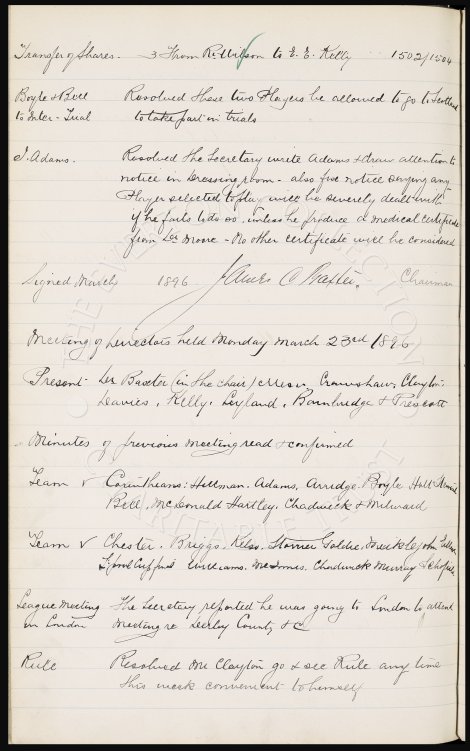 Transfer of Shares. 3 From R. Wilson to E. E. Kelly 1502/1504
Boyle & Bell Resolved these two Players be allowed to go to Scotland
to Inter-Trial to take part in trials
J. Adams. Resolved the Secretary write Adams & draw attention to
notice in dressing room - also fix notice saying any
Player selected to play will be severely dealt with
if he fails to do so, unless he produce a medical certificate
from Dr Moore - No other certificate will be considered
Signed March 1896 James C Baxter. Chairman
Meeting of Directors held Monday March 23rd 1896
Present - Dr Baxter (in the chair) Messrs Crawshaw, Clayton,
Davies, Kelly, Leyland, Bainbridge & Prescott
Minutes of previous meeting read & confirmed
Team v Corinthians: Hillman. Adams. Arridge. Boyle Holt Stewart
Bell, McDonald Hartley, Chadwick & Milward
Team v Chester. Briggs, Kelso, Storrier Goldie, Meiklejohn
Williams. McInnes. Chadwick Murray Schofield
League Meeting The Secretary reported he was going to London to attend
in London Meeting re Derby County &c
Rule Resolved Mr Clayton go & see Rule any time
this week convenient to himself